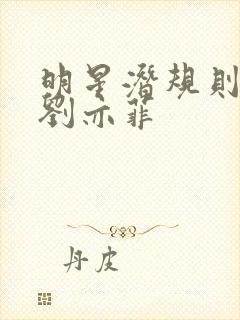 明星潛規則
劉亦菲
丹皮